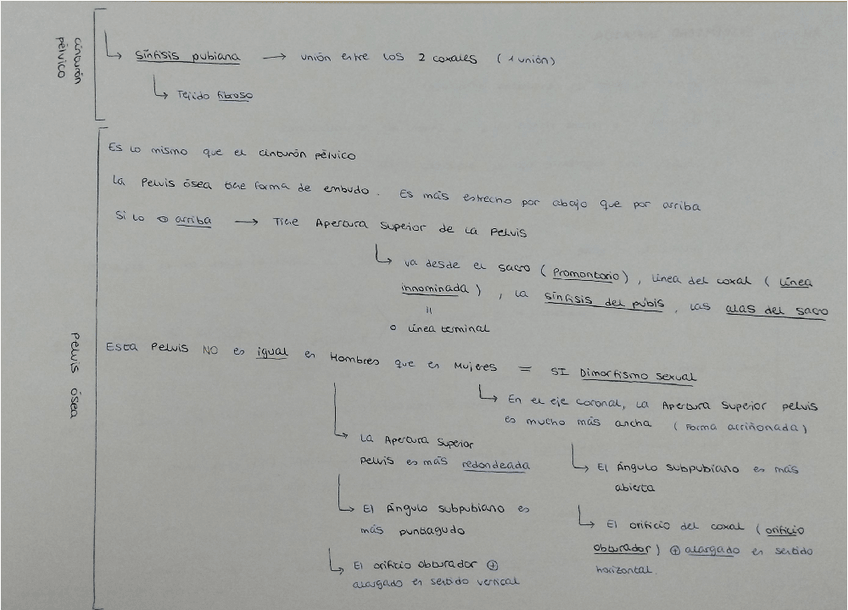 cinturón pélvico
↳ Sínfisis pubiana → unión entre los 2 coxales (1 unión)
↳ Tejido fibroso
Pelvis ósea
Es lo mismo que el cinturón pélvico
La Pelvis ósea tiene forma de embudo. Es más estrecho por abajo que por arriba
Si lo 👁 arriba → Tiene Apertura Superior de la Pelvis
↳ va desde el sacro (Promontorio), línea del coxal (línea
innominada), la sínfisis del pubis, las alas del sacro
=
o línea terminal
Esta Pelvis NO es igual en Hombres que en Mujeres = SI Dimorfismo sexual
↳ En el eje coronal, la Apertura Superior pelvis
es mucho más ancha (Forma arriñonada)
↳ La Apertura Superior
Pelvis es más redondeada
↳ El Ángulo subpubiano es más
abierta
↳ El Ángulo subpubiano es
más puntiagudo
↳ El orificio del coxal (orificio
obturador) ⊕ alargado en sentido
horizontal.
↳ El orificio obturador ⊕
alargado en sentido vertical